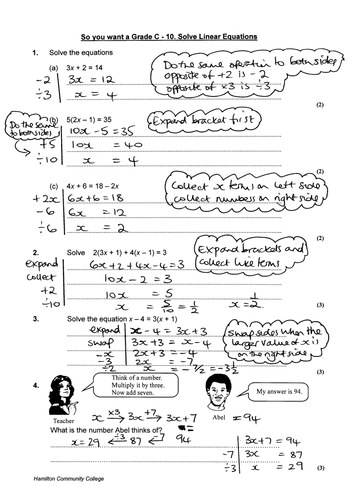 So you want a Grade C - 10. Solve Linear Equations
1. Solve the equations
(a) 3x + 2 = 14
Do the same operation to both sides
opposite of +2 is -2
opposite of ×3 is ÷3
-2 3x = 12
÷3 x = 4
(2)
(b) 5(2x - 1) = 35
Expand bracket first
Do the same
to both sides
10x - 5 = 35
+5 10x = 40
÷10 x = 4
(2)
(c) 4x + 6 = 18 - 2x
Collect x terms on left side
collect numbers on right side
+2x 6x + 6 = 18
-6 6x = 12
÷6 x = 2
(2)
2. Solve 2(3x + 1) + 4(x - 1) = 3
Expand brackets and
collect like terms
expand 6x + 2 + 4x - 4 = 3
collect 10x - 2 = 3
+2 10x = 5
÷10 x = 5/10 = 1/2 x = 1/2
(3)
3. Solve the equation x - 4 = 3(x + 1)
expand x - 4 = 3x + 3
swap 3x + 3 = x - 4
-x 2x + 3 = -4
-3 2x = -7
÷2 x = -7/2 = -3 1/2
Swap sides when the
larger value of x is
on the right side
(3)
4.
Think of a number.
Multiply it by three.
Now add seven.
My answer is 94.
Teacher
x ×3→ 3x +7→ 3x + 7
Abel
= 94
What is the number Abel thinks of?
x = 29 ÷3← 87 ←-7 94
3x + 7 = 94
-7 3x = 87
÷3 x = 29
(3)
Hamilton Community College